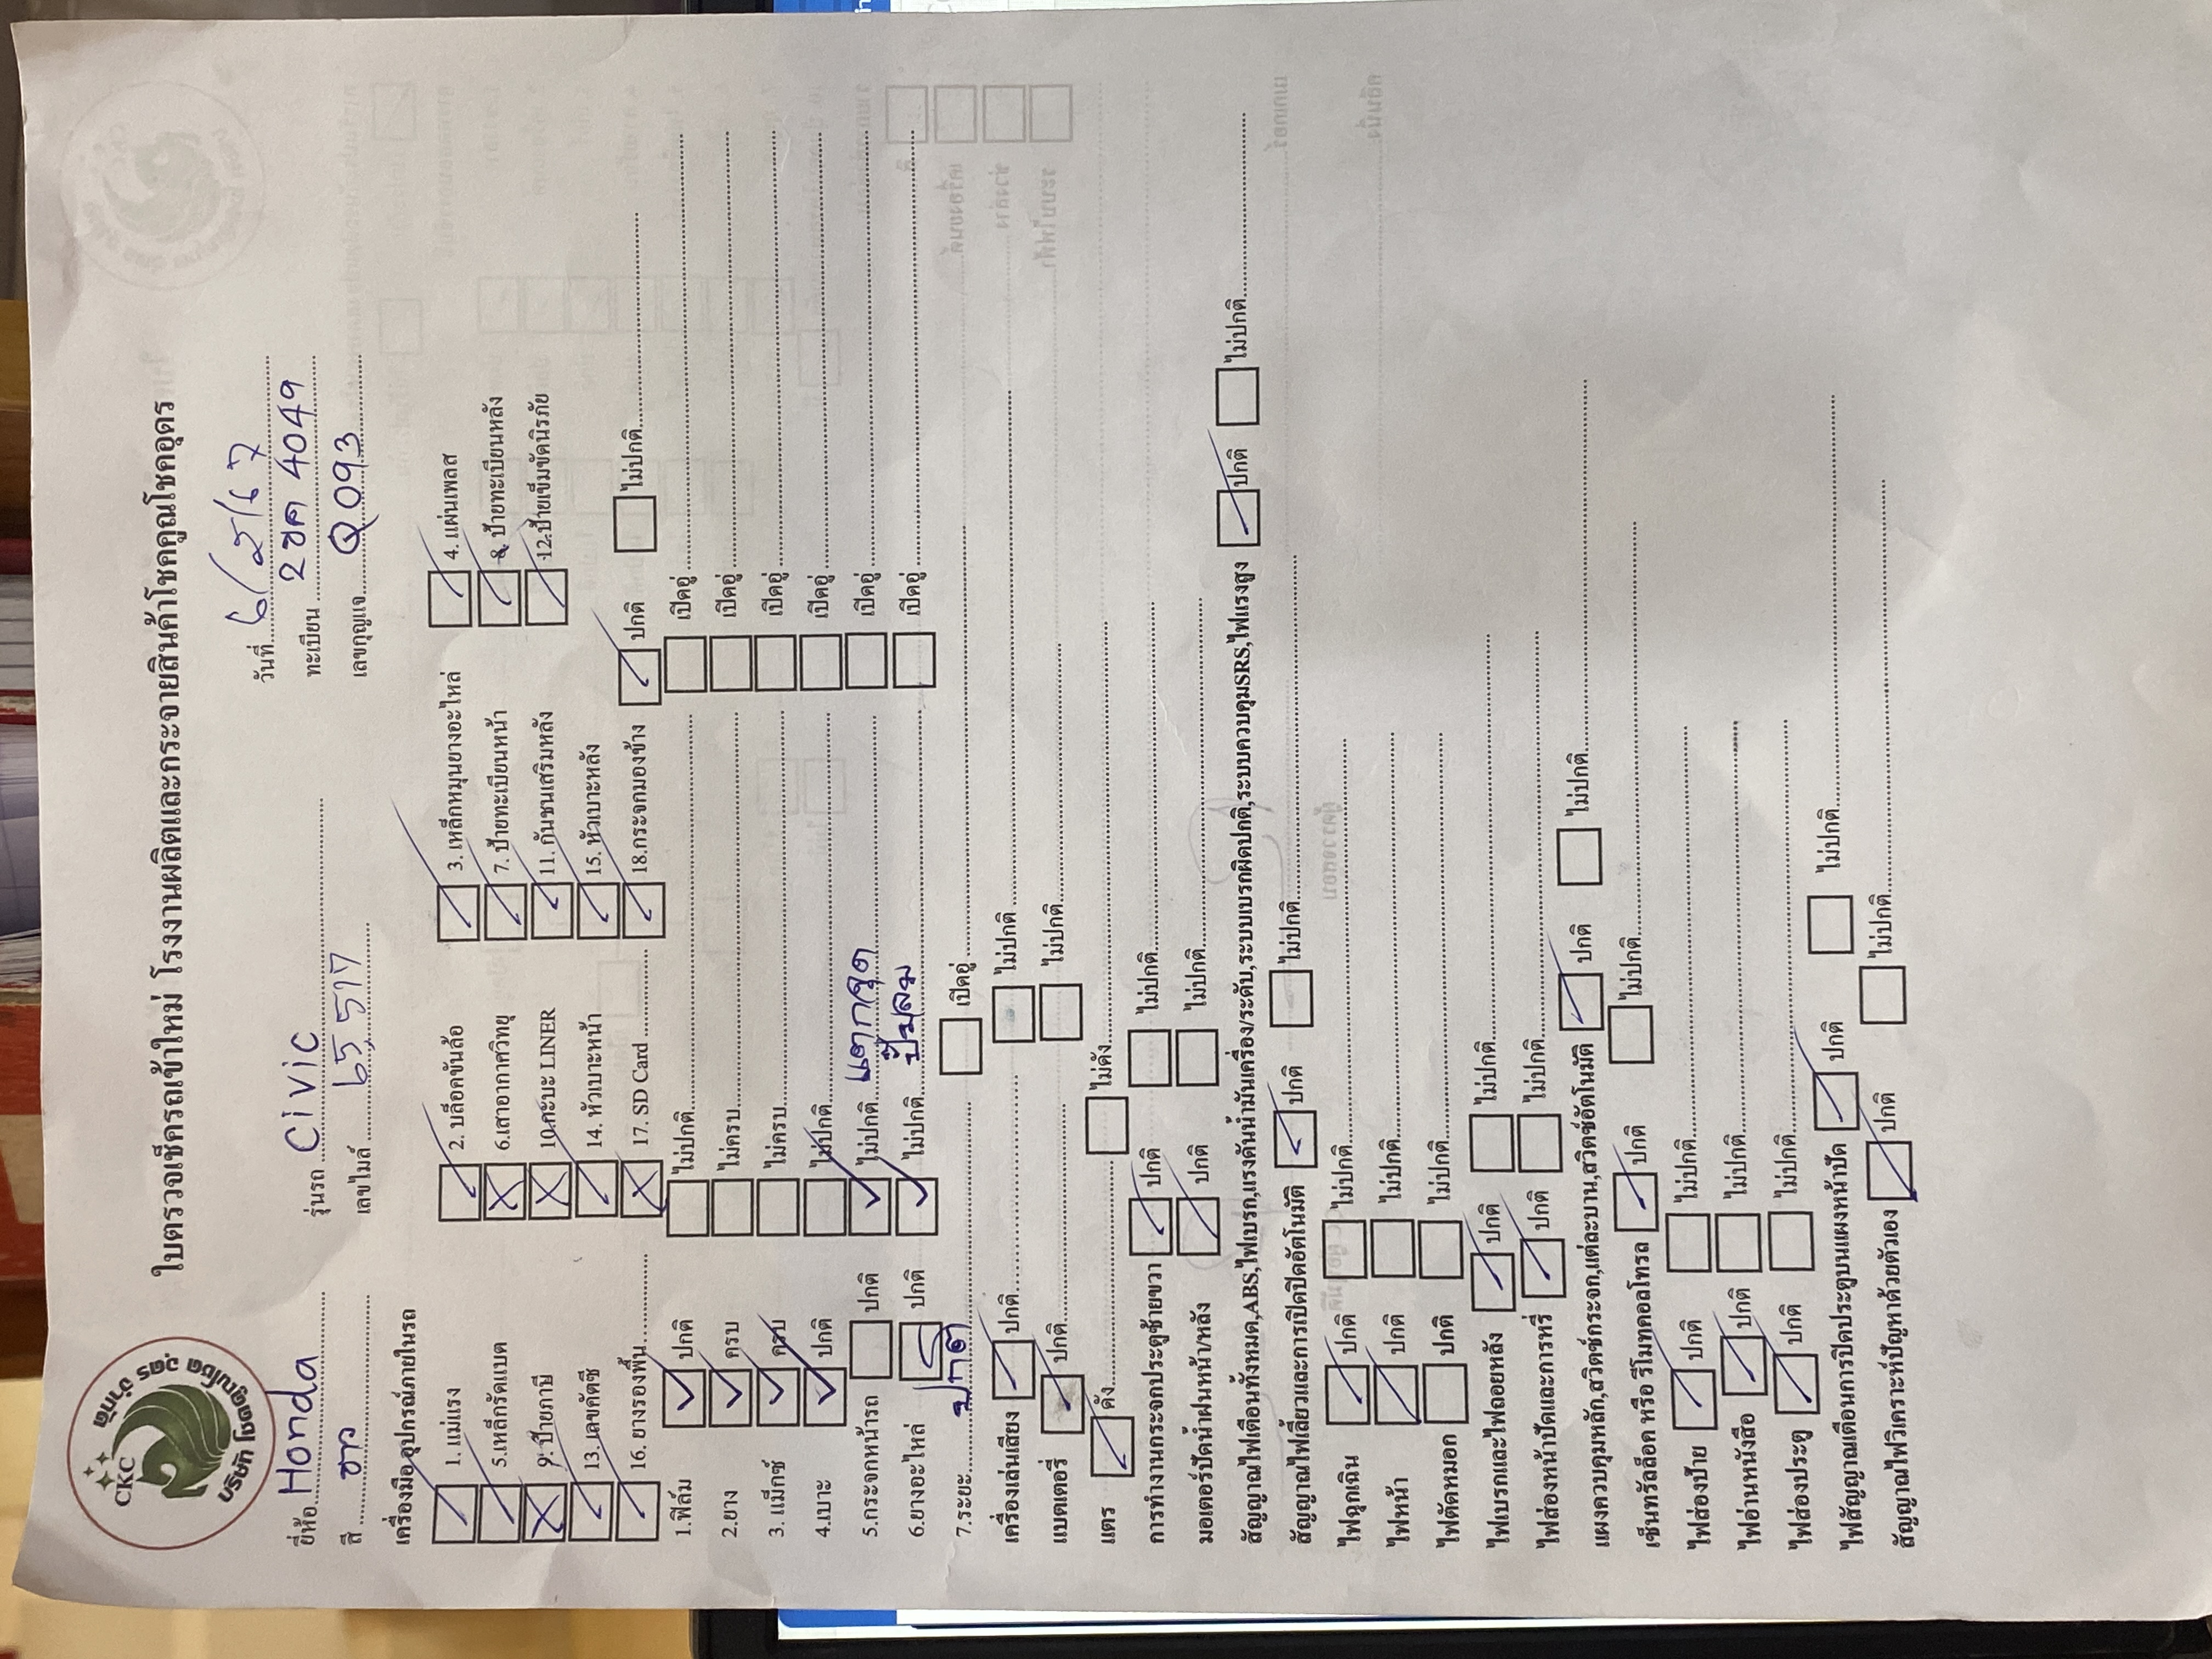 CKC
บริษัท โชคคูณโชค อุดร จำกัด
ใบตรวจเช็ครถเข้าใหม่ โรงงานผลิตและกระจายสินค้าโชคคูณโชคอุดร
วันที่ 6/5/67
ยี่ห้อ Honda รุ่นรถ Civic ทะเบียน 2ขค 4049
สี ขาว เลขไมล์ 65,517 เลขกุญแจ Q093
เครื่องมือ อุปกรณ์ภายในรถ
1. แม่แรง 2. บล็อคขันล้อ 3. เหล็กหมุนยางอะไหล่ 4. แผ่นเพลส
5.เหล็กรัดแบต 6.เสาอากาศวิทยุ 7. ป้ายทะเบียนหน้า 8. ป้ายทะเบียนหลัง
9. ป้ายภาษี 10.กะบะ LINER 11. กันชนเสริมหลัง 12.ป้ายเข็มขัดนิรภัย
13. เลขคัตซี 14. หัวเบาะหน้า 15. หัวเบาะหลัง
16. ยางรองพื้น 17. SD Card 18.กระจกมองข้าง ปกติ ไม่ปกติ
1.ฟิล์ม ปกติ ไม่ปกติ เปิดอู่
2.ยาง ครบ ไม่ครบ เปิดอู่
3. แม็กซ์ ครบ ไม่ครบ เปิดอู่
4.เบาะ ปกติ ไม่ปกติ เปิดอู่
5.กระจกหน้ารถ ปกติ ไม่ปกติ แตกจุด เปิดอู่
6.ยางอะไหล่ ปกติ ไม่ปกติ ปั๊มลม เปิดอู่
7.ระยะ ปกติ เปิดอู่
เครื่องเล่นเสียง ปกติ ไม่ปกติ
แบตเตอรี่ ปกติ ไม่ปกติ
แตร ดัง ไม่ดัง
การทำงานกระจกประตูซ้ายขวา ปกติ ไม่ปกติ
มอเตอร์ปัดน้ำฝนหน้า/หลัง ปกติ ไม่ปกติ
สัญญาณไฟเตือนทั้งหมด,ABS,ไฟเบรก,แรงดันน้ำมันเครื่อง/ระดับ,ระบบเบรกผิดปกติ,ระบบควบคุมSRS,ไฟแรงสูง ปกติ ไม่ปกติ
สัญญาณไฟเลี้ยวและการเปิดปิดอัตโนมัติ ปกติ ไม่ปกติ
ไฟฉุกเฉิน ปกติ ไม่ปกติ
ไฟหน้า ปกติ ไม่ปกติ
ไฟตัดหมอก ปกติ ไม่ปกติ
ไฟเบรกและไฟถอยหลัง ปกติ ไม่ปกติ
ไฟส่องหน้าปัดและการหรี่ ปกติ ไม่ปกติ
แผงควบคุมหลัก,สวิตช์กระจก,แต่ละบาน,สวิตช์อัตโนมัติ ปกติ ไม่ปกติ
เซ็นทรัลล็อค หรือ รีโมทคอลโทรล ปกติ ไม่ปกติ
ไฟส่องป้าย ปกติ ไม่ปกติ
ไฟอ่านหนังสือ ปกติ ไม่ปกติ
ไฟส่องประตู ปกติ ไม่ปกติ
ไฟสัญญาณเตือนการปิดประตูบนแผงหน้าปัด ปกติ ไม่ปกติ
สัญญาณไฟวิเคราะห์ปัญหาด้วยตัวเอง ปกติ ไม่ปกติ